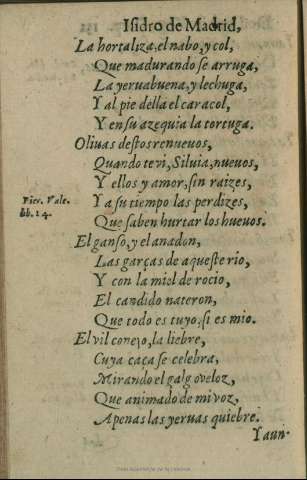 Isidro de Madrid,
La hortaliza, el nabo, y col,
Que madurando se arruga,
La yeruabuena, y lechuga,
Y al pie della el caracol,
Y en su azequia la tortuga.
Oliuas destos renueuos,
Quando te vi, Siluia, nueuos,
Y ellos y amor, sin raizes,
Pier. Vale.
lib. 24.
Y a su tiempo las perdizes,
Que saben hurtar los hueuos.
El ganso, y el anadon,
Las garças de aqueste rio,
Y con la miel de rocio,
El candido nateron,
Que todo es tuyo, si es mio.
El vil conejo, la liebre,
Cuya caça se celebra,
Mirando el galgo veloz,
Que animado de mi voz,
Apenas las yeruas quiebre.
Y aun-